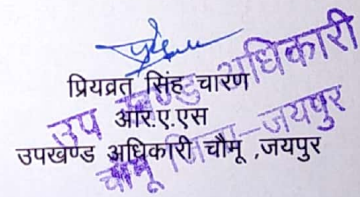 प्रियव्रत सिंह चारण
आर.ए.एस
उपखण्ड अधिकारी चौमू ,जयपुर
उप खण्ड अधिकारी
चौमू जिला-जयपुर